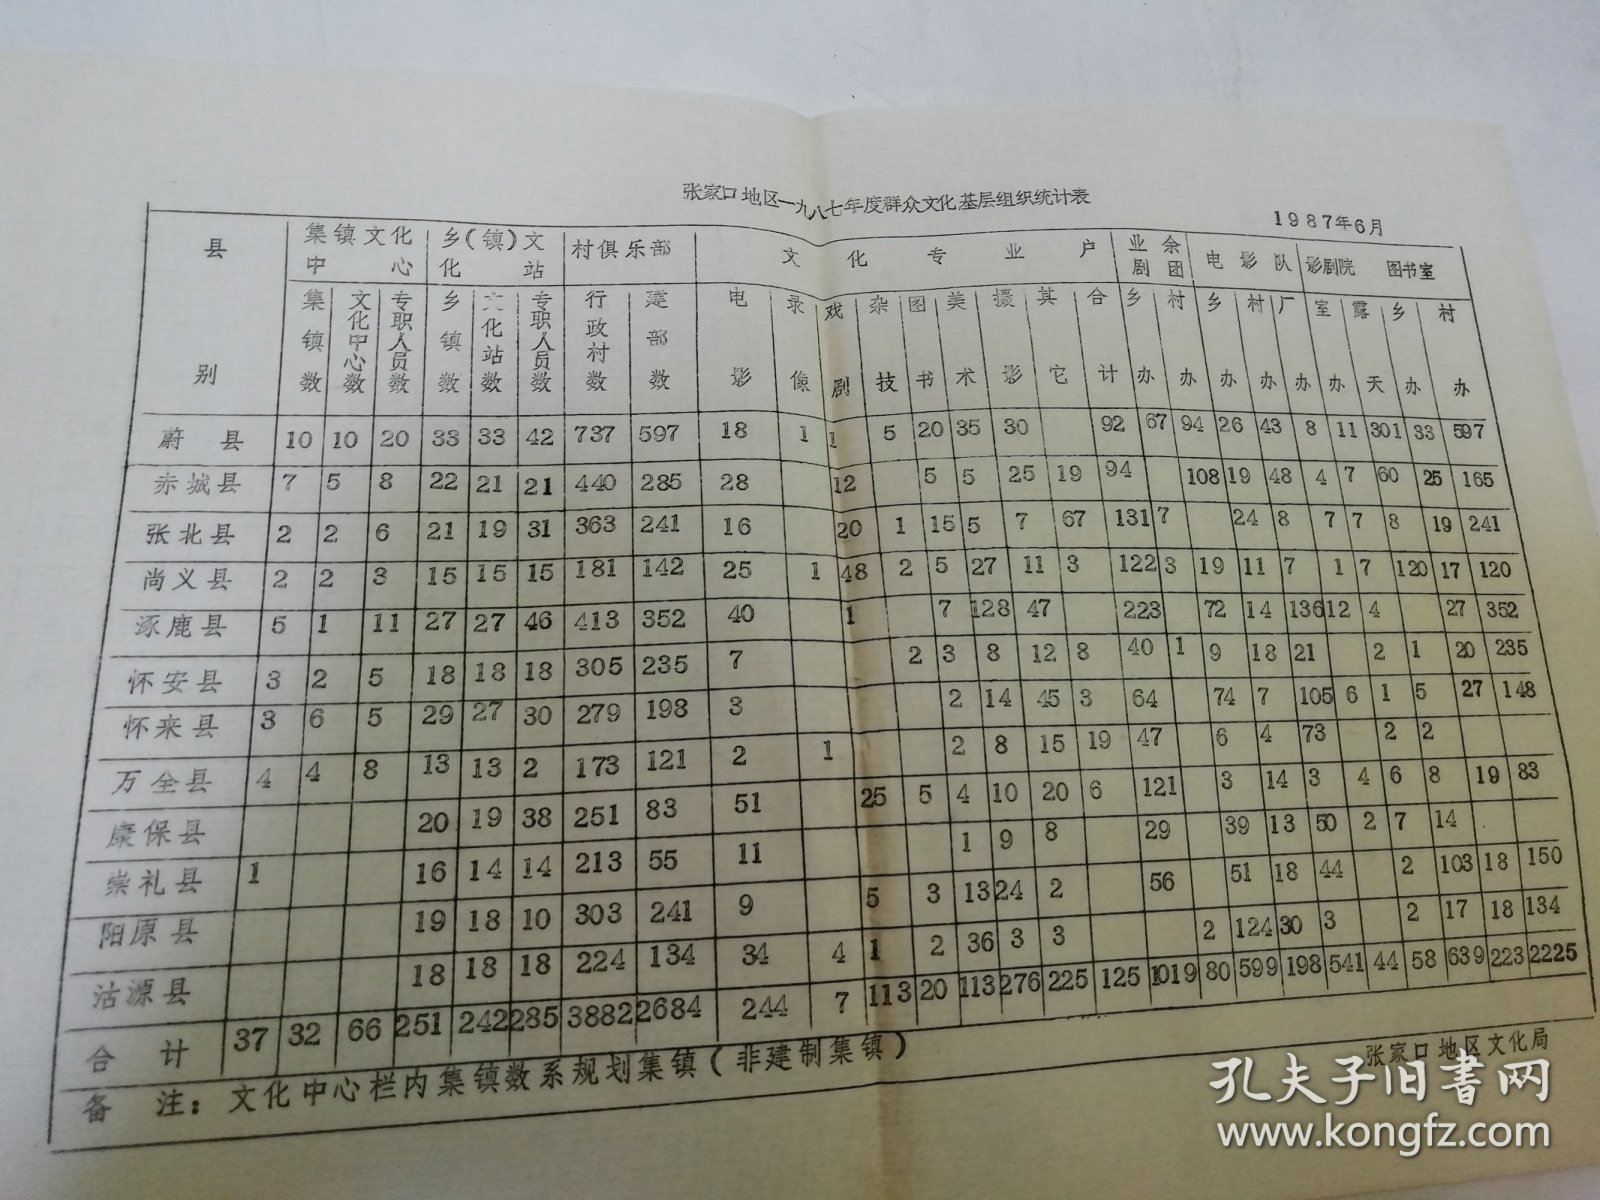 张家口地区一九八七年度群众文化基层组织统计表
1987年6月
县别 集镇文化中心 乡(镇)文化站 村俱乐部 文化专业户 业余剧团 电影队 影剧院 图书室
集镇数 文化中心数 专职人员数 乡镇数 文化站数 专职人员数 行政村数 建部数 电影 录像 戏剧 杂技 图书 美术 摄影 其它 合计 乡办 村办 乡办 村办 厂办 室办 露天 乡办 村办
蔚县 10 10 20 33 33 42 737 597 18 1 1 5 20 35 30 92 67 94 26 43 8 11 301 33 597
赤城县 7 5 8 22 21 21 440 285 28 12 5 5 25 19 94 108 19 48 4 7 60 25 165
张北县 2 2 6 21 19 31 363 241 16 20 1 15 5 7 67 131 7 24 8 7 7 8 19 241
尚义县 2 2 3 15 15 15 181 142 25 1 48 2 5 27 11 3 122 3 19 11 7 1 7 120 17 120
涿鹿县 5 1 11 27 27 46 413 352 40 1 7 128 47 223 72 14 136 12 4 27 352
怀安县 3 2 5 18 18 18 305 235 7 2 3 8 12 8 40 1 9 18 21 2 1 20 235
怀来县 3 6 5 29 27 30 279 198 3 2 14 45 3 64 74 7 105 6 1 5 27 148
万全县 4 4 8 13 13 2 173 121 2 1 2 8 15 19 47 6 4 73 2 2
康保县 20 19 38 251 83 51 25 5 4 10 20 6 121 3 14 3 4 6 8 19 83
崇礼县 1 16 14 14 213 55 11 1 9 8 29 39 13 50 2 7 14
阳原县 19 18 10 303 241 9 5 3 13 24 2 56 51 18 44 2 103 18 150
沽源县 18 18 18 224 134 34 4 1 2 36 3 3 2 124 30 3 2 17 18 134
合计 37 32 66 251 242 285 3882 2684 244 7 113 20 113 276 225 125 1019 80 599 198 541 44 58 639 223 2225
备注：文化中心栏内集镇数系规划集镇(非建制集镇)
张家口地区文化局
孔夫子旧书网
www.kongfz.com